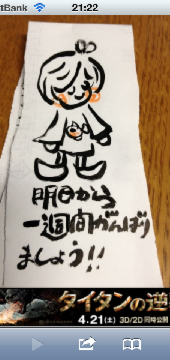 tBank 21:22
明日から
一週間がんばり
ましょう!!
タイタンの逆
4.21(土) 3D/2D同時公開